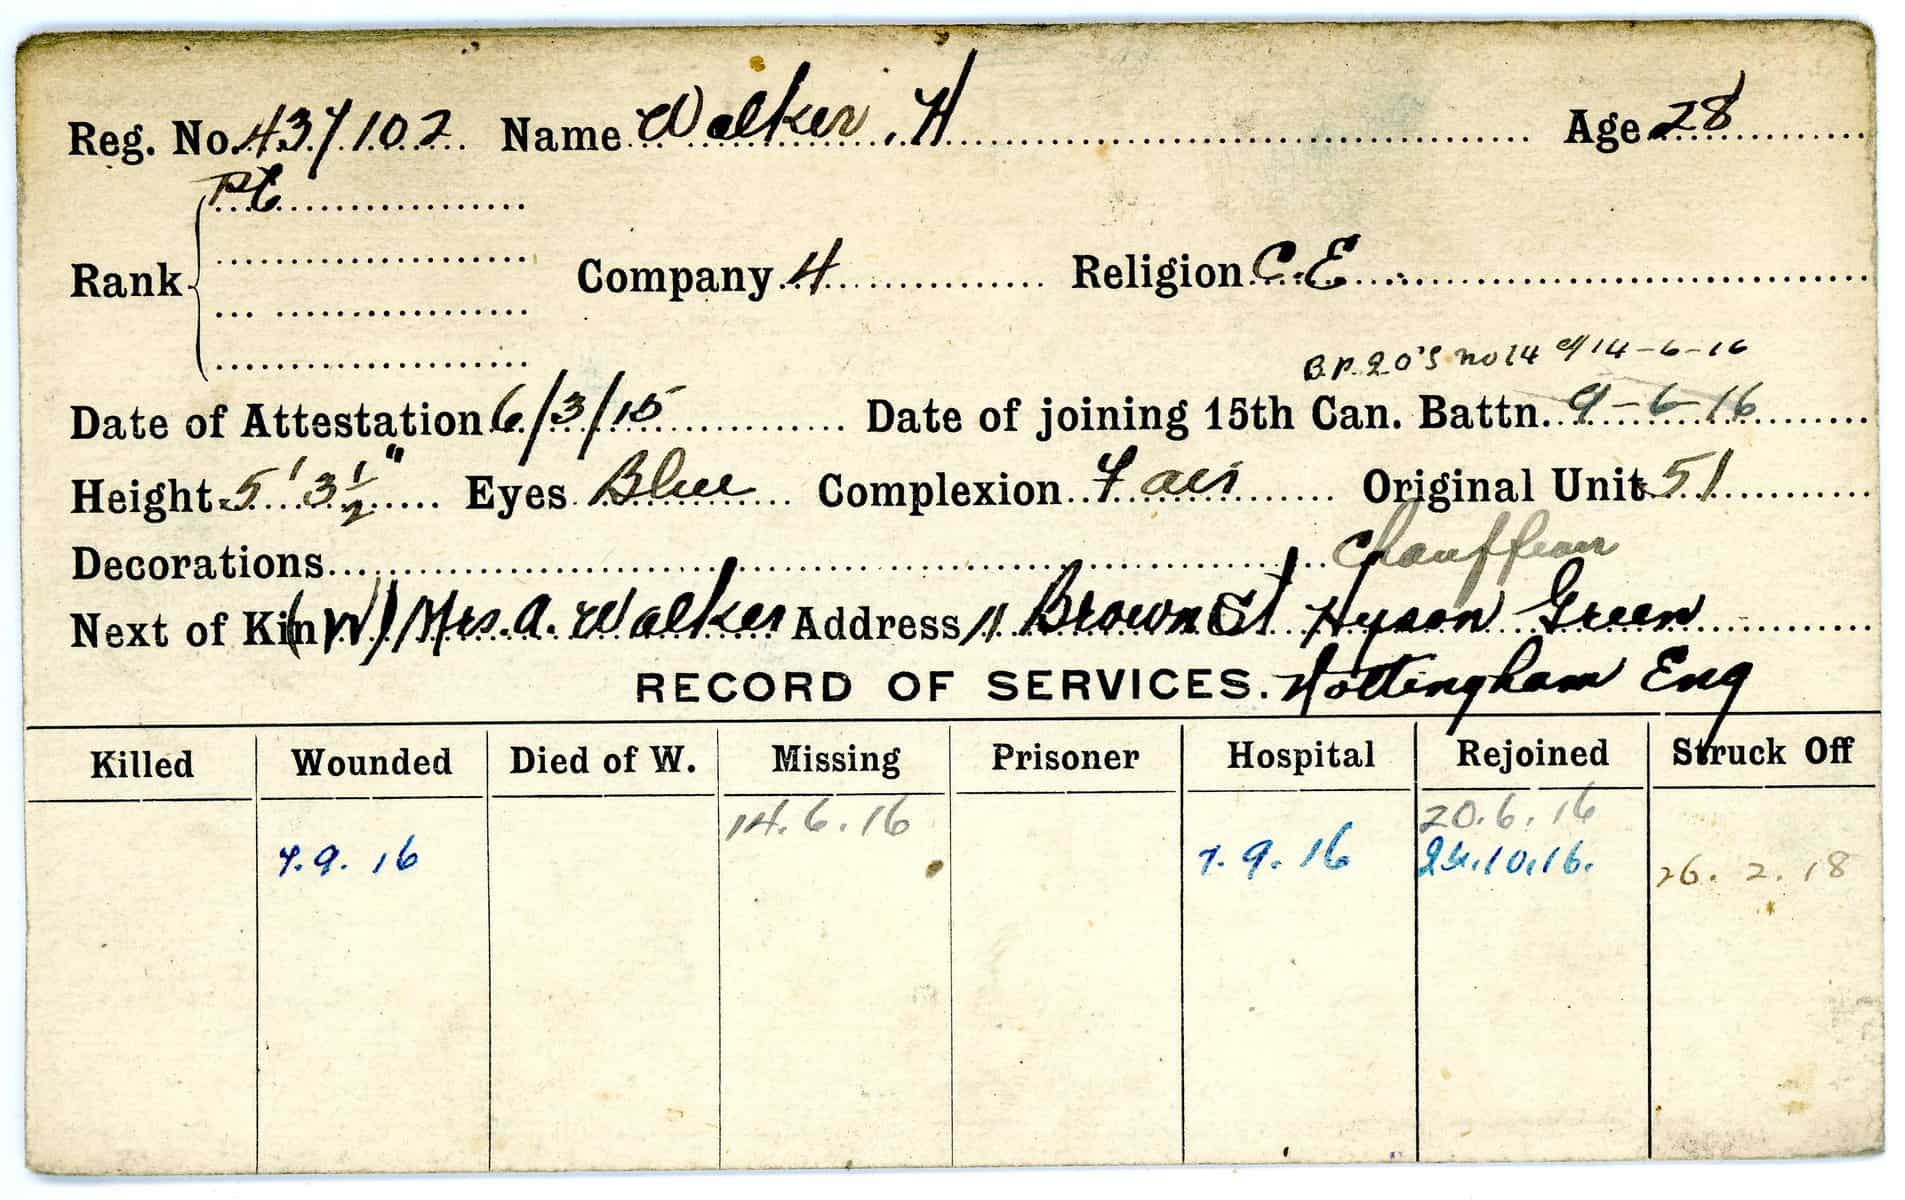 Reg. No. 437102 Name Walker, H Age 28
Pt
Rank Company 4 Religion C.E
B.P. 20's no 14 of 14-6-16
Date of Attestation 6/3/15 Date of joining 15th Can. Battn. 9-6-16
Height 5' 3 1/2" Eyes Blue Complexion Fair Original Unit 51
Decorations Chauffeur
Next of Kin (W) Mrs. A. Walker Address 11 Brown St Hyson Green
RECORD OF SERVICES. Nottingham Eng
Killed Wounded Died of W. Missing Prisoner Hospital Rejoined Struck Off
14.6.16 20.6.16
7.9.16 7.9.16 24.10.16. 26.2.18